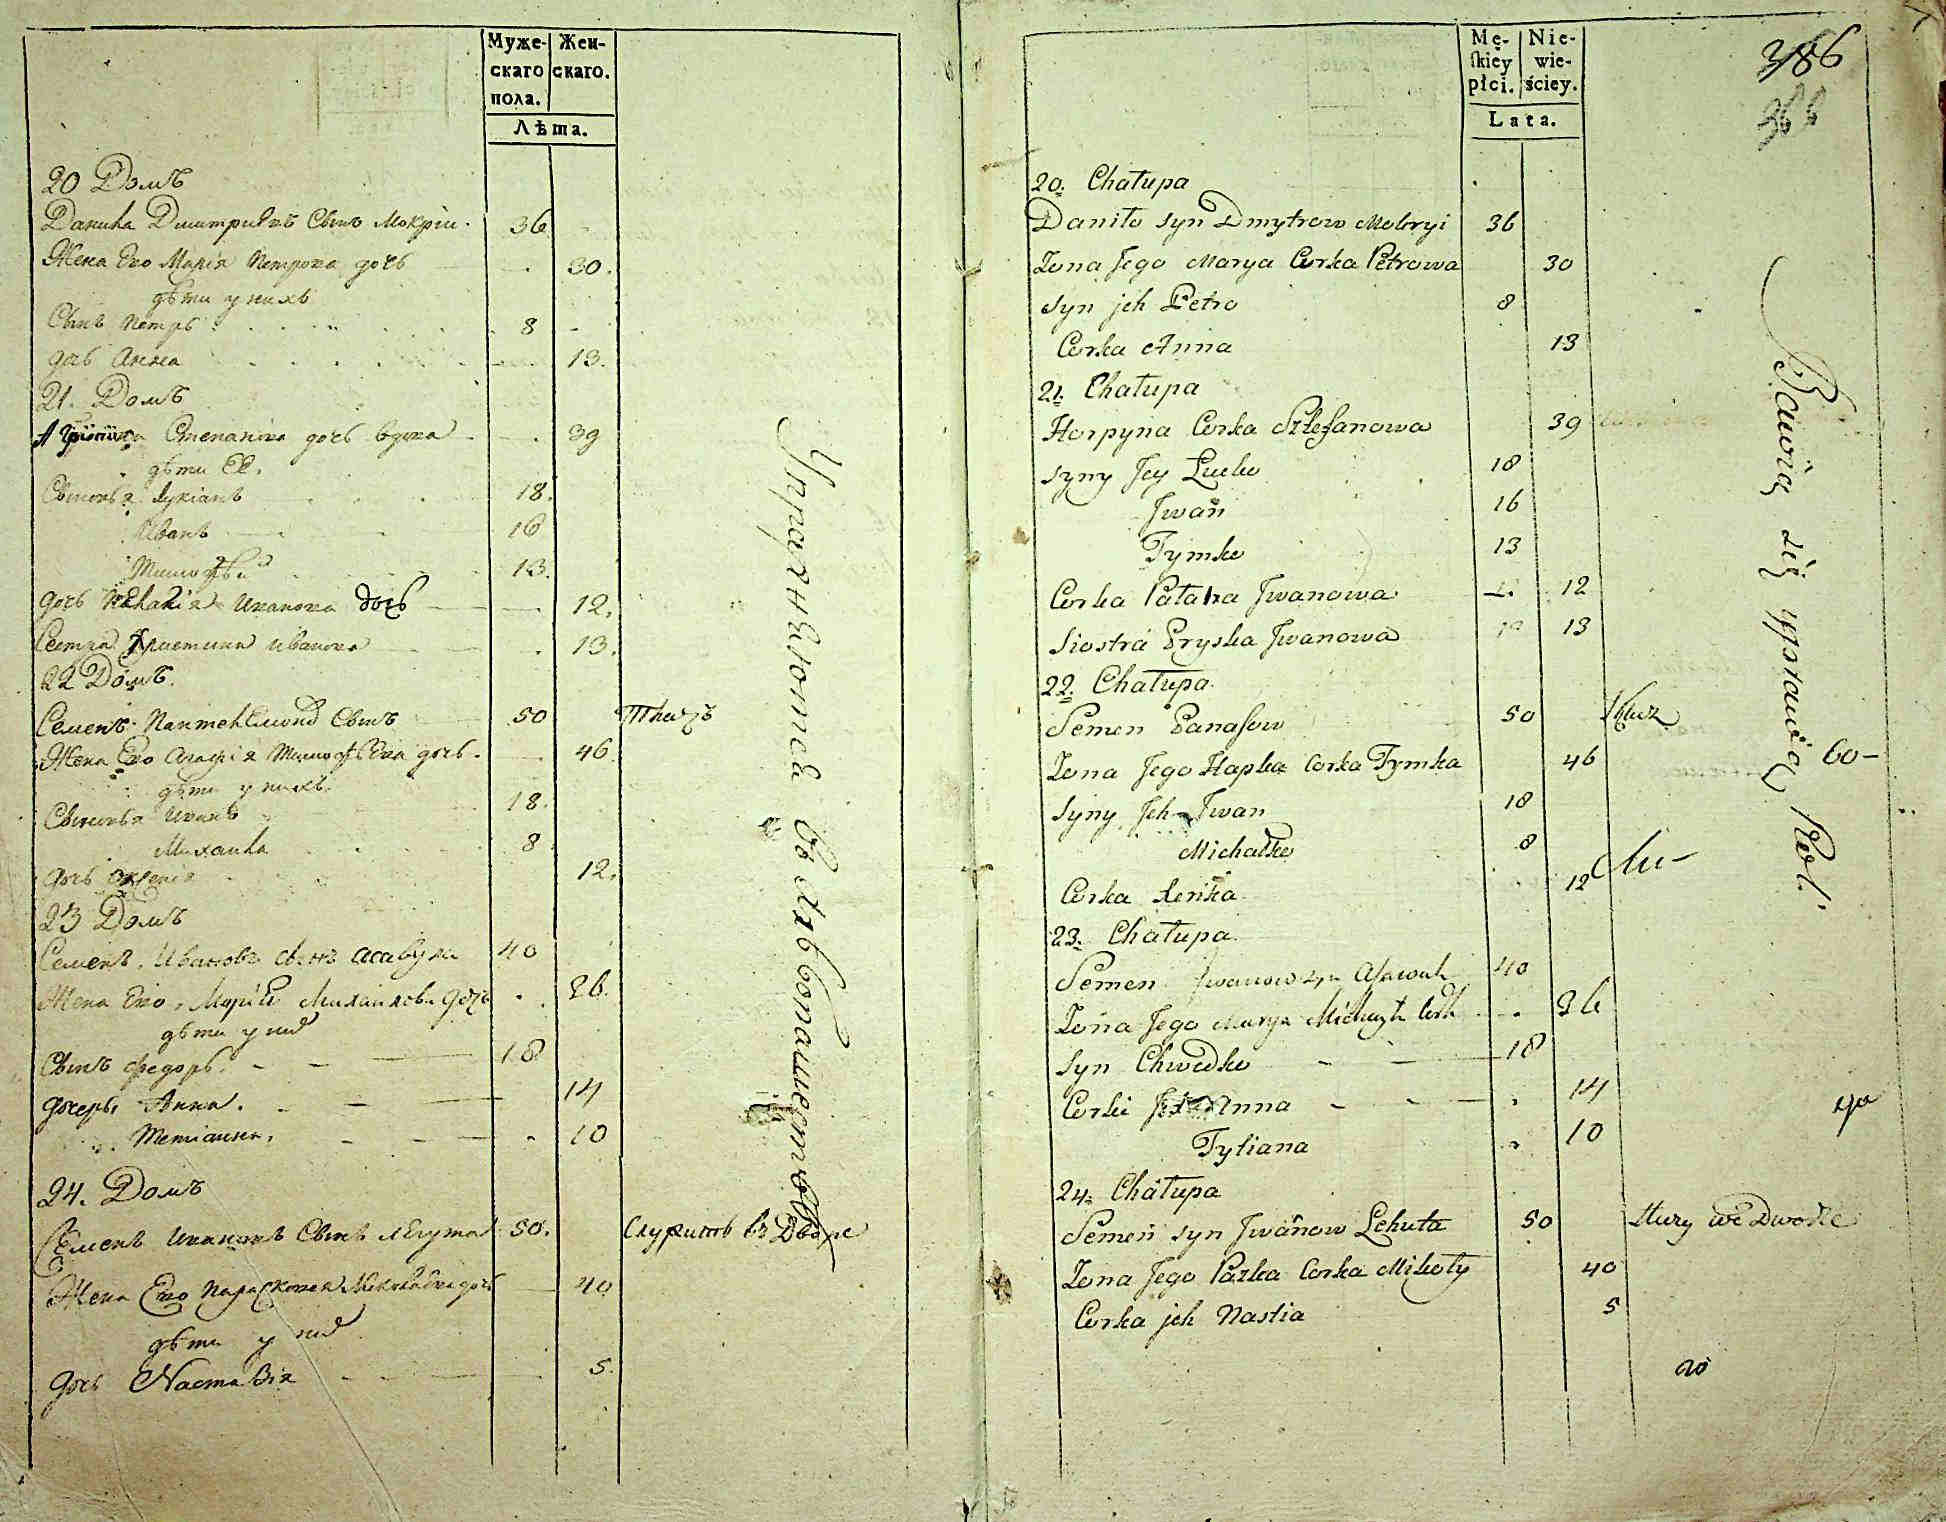 Муже-
скаго
пола.
Жен-
скаго.
Лѣта.
20 Домъ
Данила Дмитриевъ Сынъ Мокрiи 36
Жена Его Марiя Петрова дочь 30.
дѣти у нихъ
Сынъ Петръ 8
дочь Анна 13.
21. Домъ
Агрипина Степанова дочь вдова 39
дѣти Ее.
Сыновья Лукiанъ 18.
Иванъ 16
Тимофѣй 13.
дочь Пелагiя Иванова дочь 12.
Сестра Христина Иванова 13.
22 Домъ.
Семенъ Сынъ 50 Ткачъ
Жена Его Агафiя Тимофѣева дочь. 46
дѣти у нихъ
Сыновья Иванъ 18.
Михаила 8
дочь 12.
23 Домъ
Семенъ Ивановъ сынъ Асавула 40
Жена Его, Марiя Михайлова дочь 26.
дѣти у них
Сынъ Федоръ. 18
дочерь, Анна. 14
Тетiанна, 10
24. Домъ
Семенъ Ивановъ Сынъ Легута 50. Служитъ въ Дворе
Жена Его Парасковея дочь 40
дѣти у них
дочь Настасiя 5.
Упражняются въ хлѣбопашествѣ
Mę-
skiey
płci.
Nie-
wie-
ściey.
Lata.
386
366
20. Chałupa
Daniło syn Dmytrow Mokryi 36
Zona Jego Marya Corka Petrowa 30
syn jch Petro 8
Corka Anna 13
21. Chałupa
Horpyna Corka Sztefanowa 39
syny Jey Lucko 18
Jwan 16
Tymko 13
Corka Pałaha Jwanowa 12
siostra Pryska Jwanowa 13
22. Chałupa
Semen Panasow 50 Tkacz
Zona Jego Hapka Corka Tymka 46
syny Jch Jwan 18
Michałko 8
Corka 12
23. Chałupa
Semen Jwanow syn Asawuł 40
Zona Jego Marya Cork 36
syn Chwedko 18
Corki Jch Anna 14
Tytiana 10
24. Chałupa
Semen syn Jwanow Lehuta 50 słuzy we Dworze
Zona Jego Pazka Corka Mikoły 40
Corka jch Nastia 5
20
Bawią się Rol.
60-